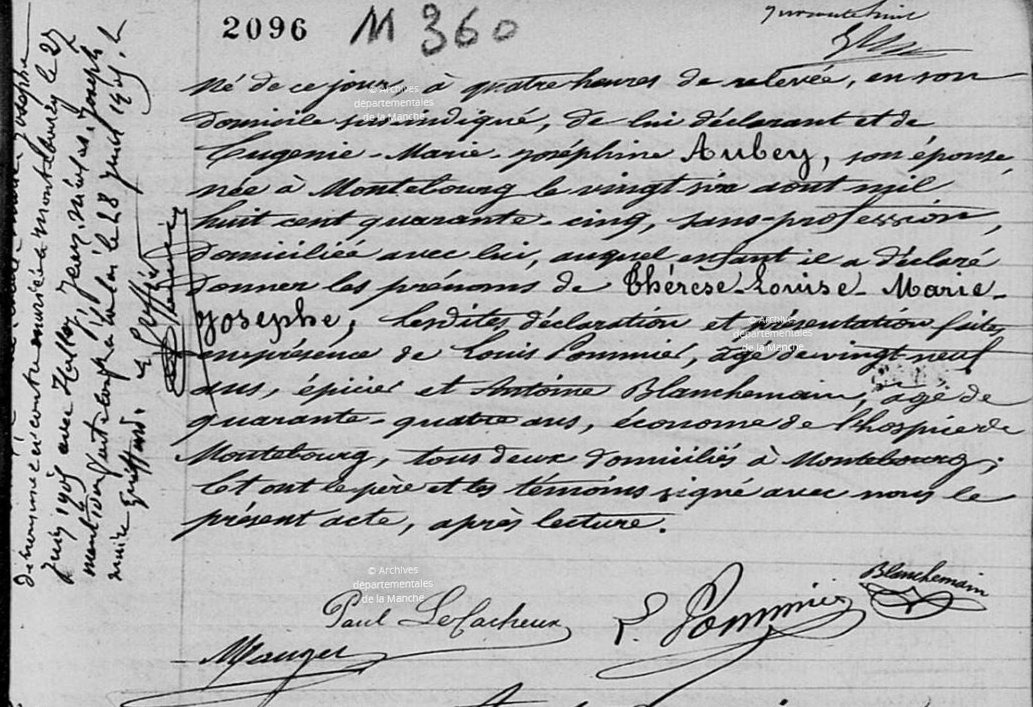 2096 M 360
né de ce jour, à quatre heures de relevée, en son
domicile susindiqué, de lui déclarant et de
Eugenie-Marie-Joséphine Aubey, son épouse,
née à Montebourg le vingt six août mil
huit cent quarante-cinq, sans-profession,
domiciliée avec lui, auquel enfant il a déclaré
donner les prénoms de Thérèse-Louise-Marie-
Josephe; lesdites déclaration et présentation faites
en présence de Louis Pommier, âgé de vingt neuf
ans, épicier et Antoine Blanchemain, âgé de
quarante-quatre ans, économe de l'hospice de
Montebourg, tous deux domiciliés à Montebourg;
Et ont le père et les témoins signé avec nous le
présent acte, après lecture.
Paul LeCacheux L. Pommier Blanchemain
Mauger
mariée à Montebourg le 27
Juin 1905 avec
le 28 Juin 1905. L
maire
Le Greffier
© Archives
départementales
de la Manche
© Archives
départementales
de la Manche
© Archives
départementales
de la Manche